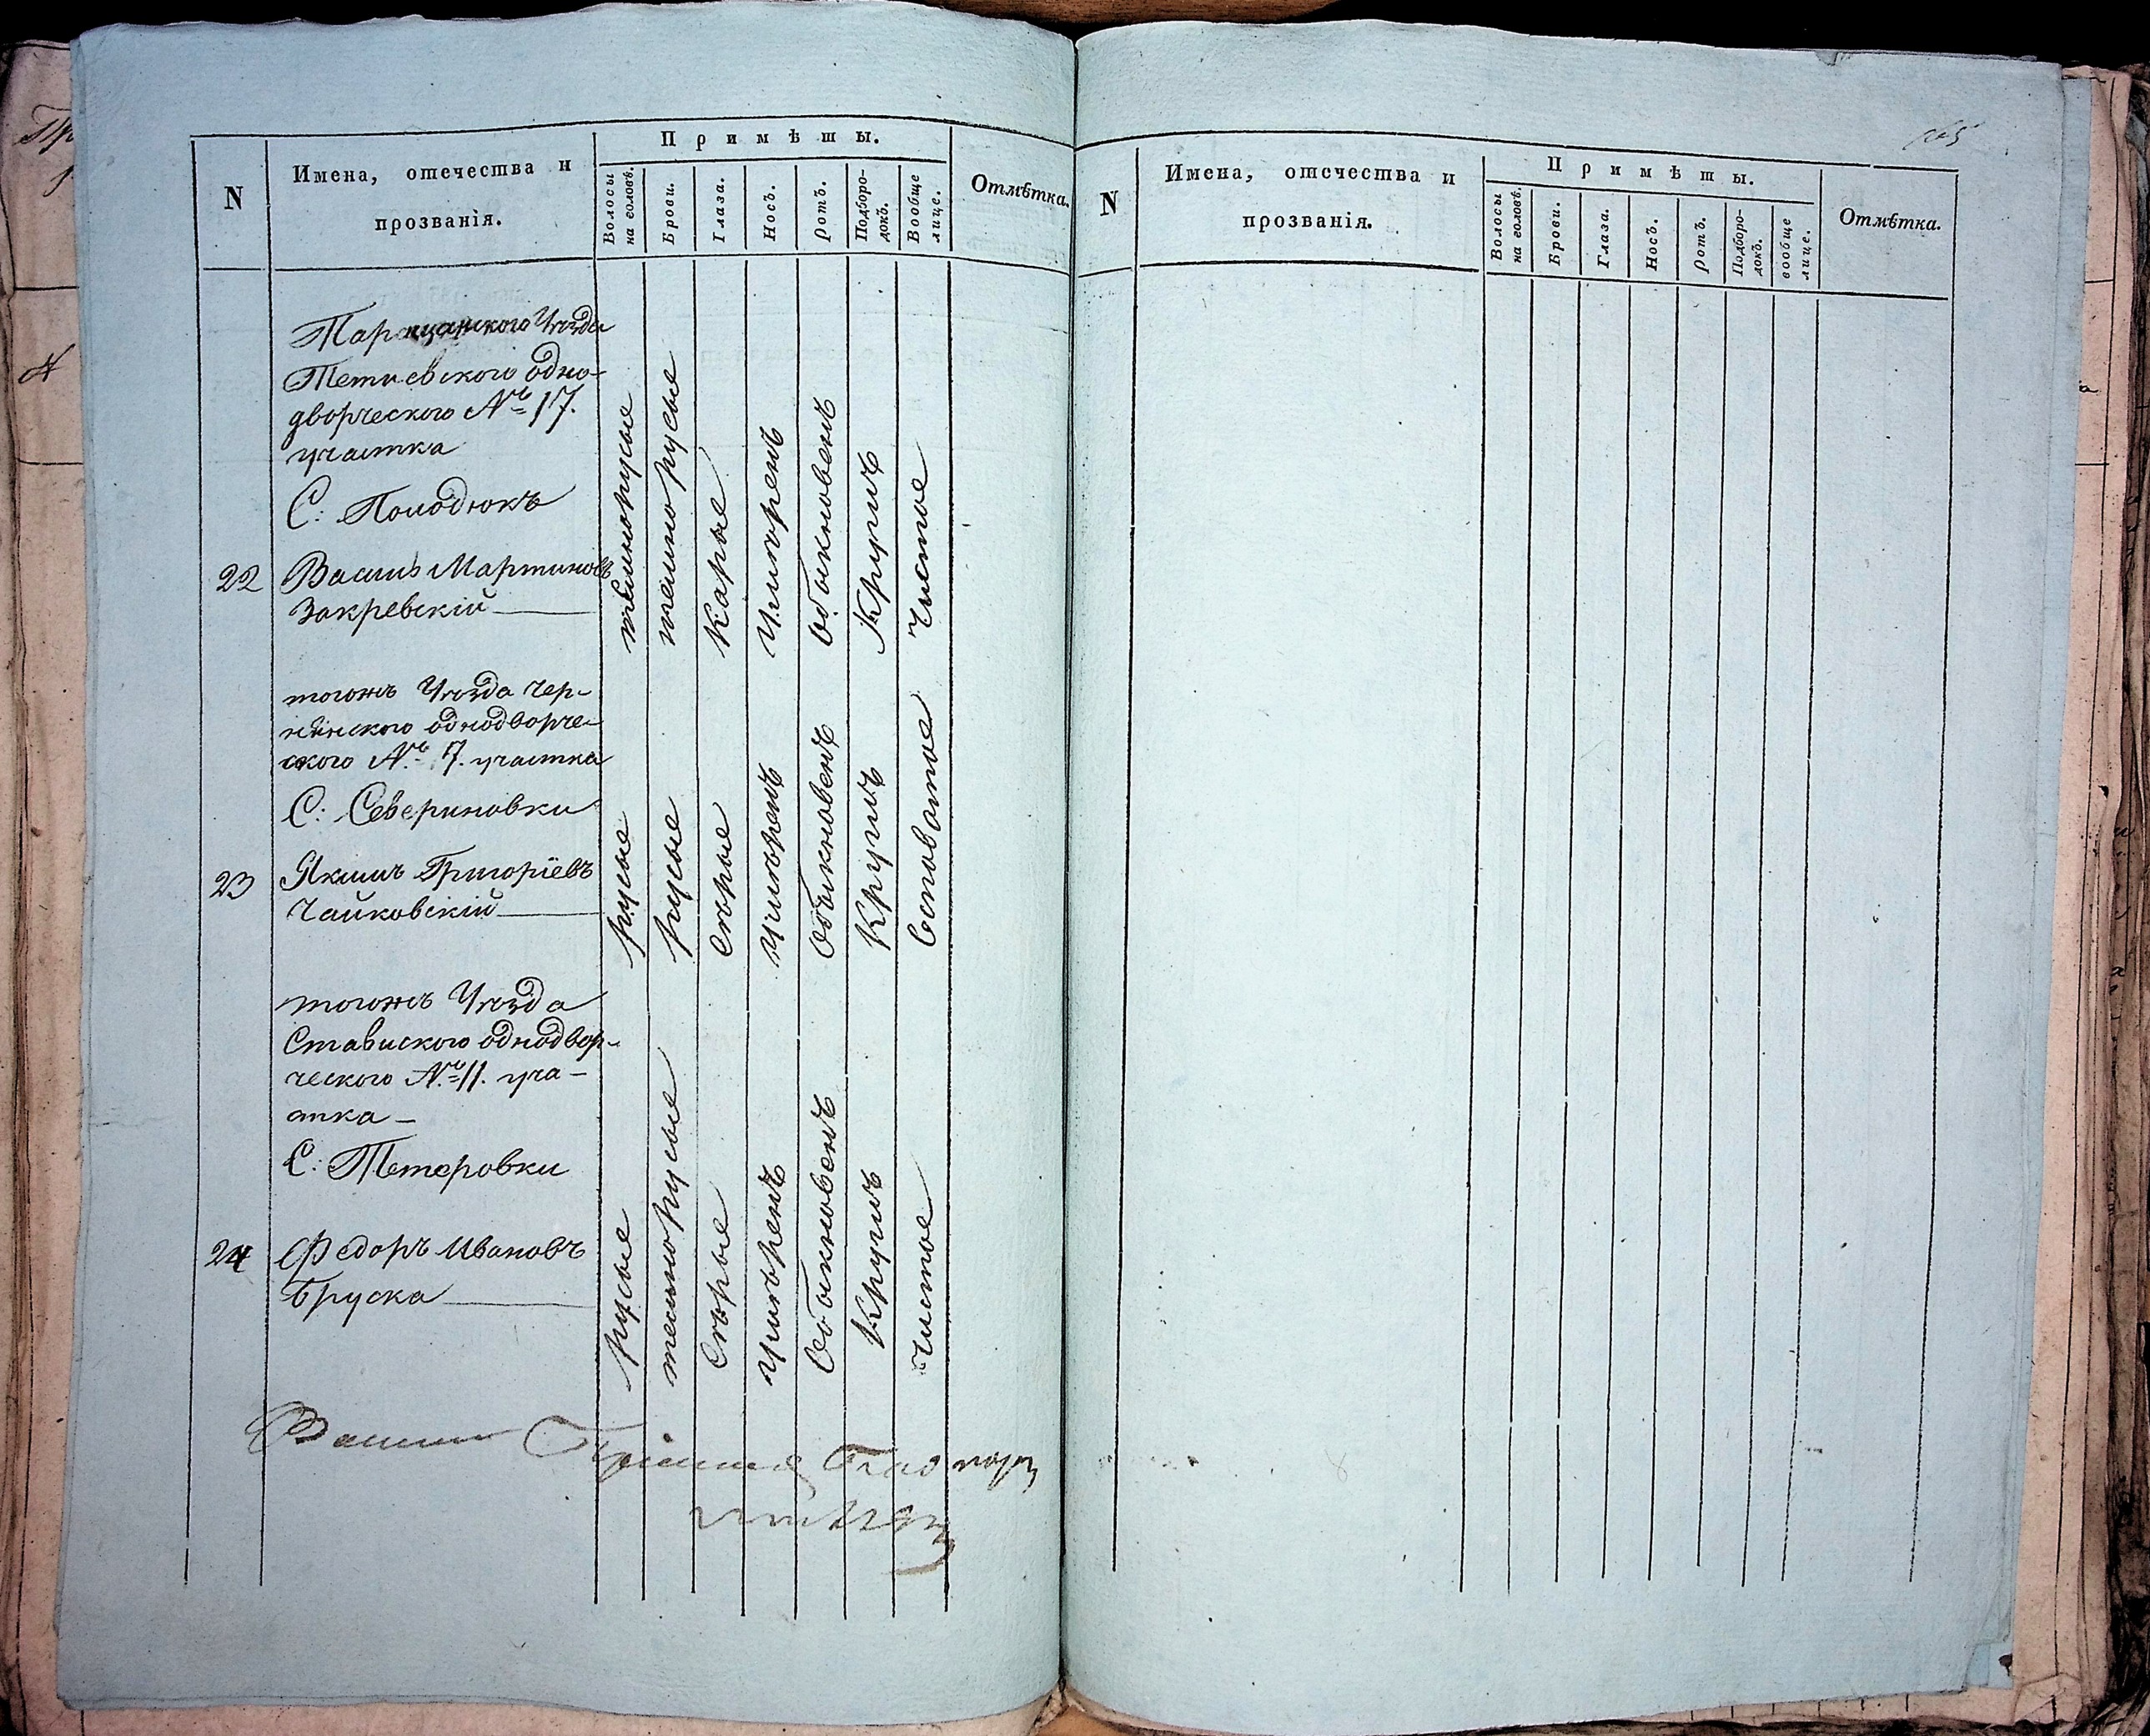 N
Имена, отечества и
прозванія.
Примѣты.
Волосы
на головѣ.
Брови.
Глаза.
Носъ.
Ротъ.
Подборо-
докъ.
Вообще
лице.
Отмѣтка.
Таращанского Уѣзда
Тетиевского одно-
дворческого № 17.
участка
С:
22
Мартиновъ
Закревскій
темнорусые
темнорусые
Карые
Умѣренъ
Обыкновенъ
Кругилъ
Чистое
тогожъ Уѣзда Чер-
нинского однодворче-
ского № 7. участка
С: Севериновки
23
Якимъ Григоріевъ
Чайковскій
русые
русые
Сѣрые
Умѣренъ
Обыкновенъ
Кругилъ
Есповатое
тогожъ Уѣзда
Ставиского однодвор-
ческого № 11. уча-
стка
С: Тетеровки
24
Федоръ Ивановъ
Бруска
русые
темнорусые
Сѣрые
Умѣренъ
Обыкновенъ
Кругилъ
Чистое
N
Имена, отечества и
прозванія.
Примѣты.
Волосы
на головѣ.
Брови.
Глаза.
Носъ.
Ротъ.
Подборо-
докъ.
вообще
лице.
Отмѣтка.